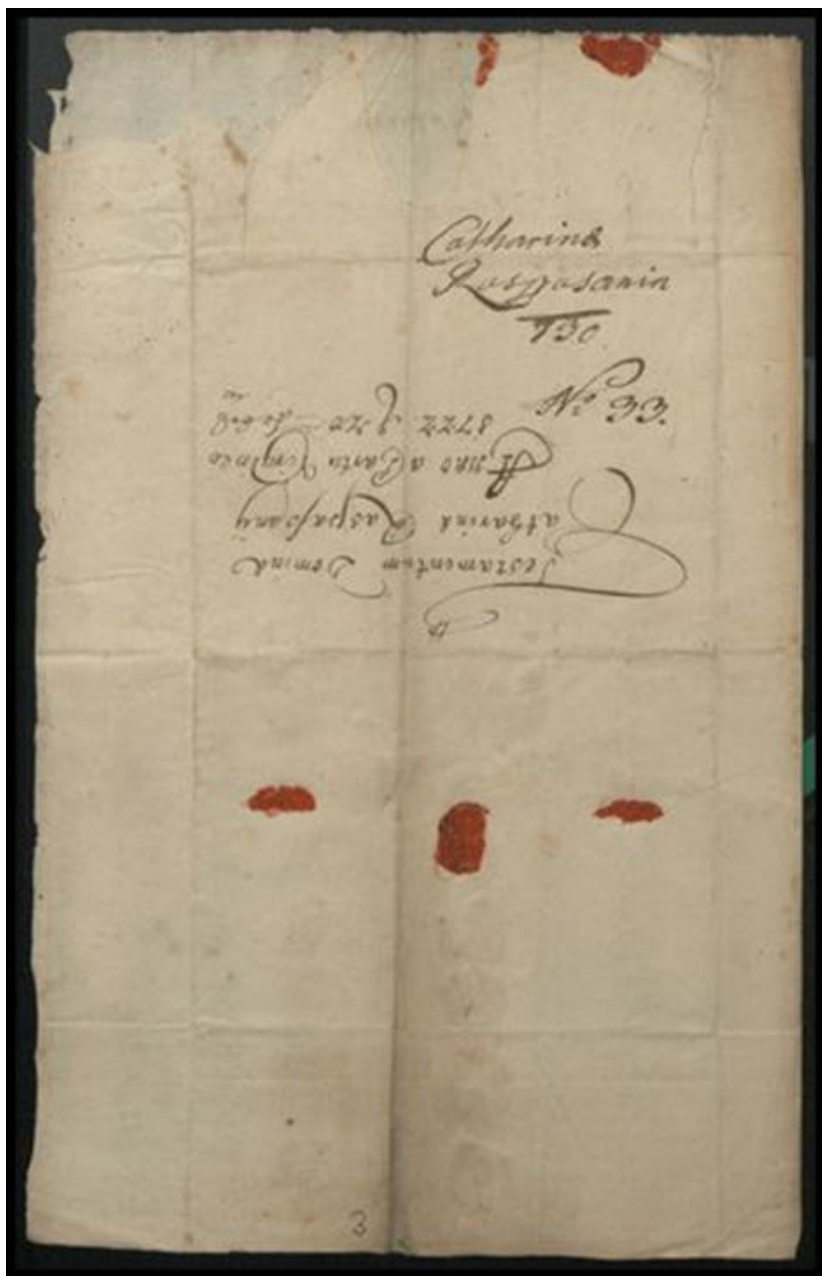 Catharinæ
Raspasanin
730.
No 33.
Testamentum Dominæ
Catharinæ Raspassany
Anno a Partu Virgineo
3